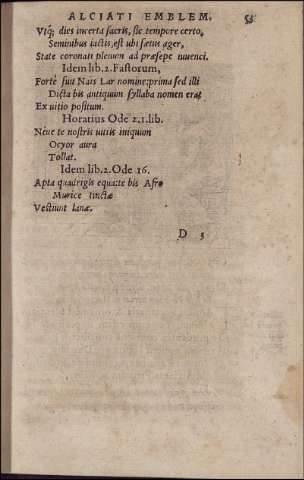 ALCIATI EMBLEM. 53
Vtq́; dies incerta sacris, sic tempore certo,
Seminibus iactis, est ubi fœtus ager,
State coronati plenum ad præsepe iuuenci.
Idem lib. 2. Fastorum,
Fortè fuit Nais Lar nomine; prima sed illi
Dicta bis antiquum syllaba nomen erat
Ex uitio positum.
Horatius Ode 2. 1. lib.
Neue te nostris uitiis iniquum
Ocyor aura
Tollat.
Idem lib. 2. Ode 16.
Apta quadrigis equa: te bis Afro
Murice tinctæ
Vestiunt lanæ.
D 3